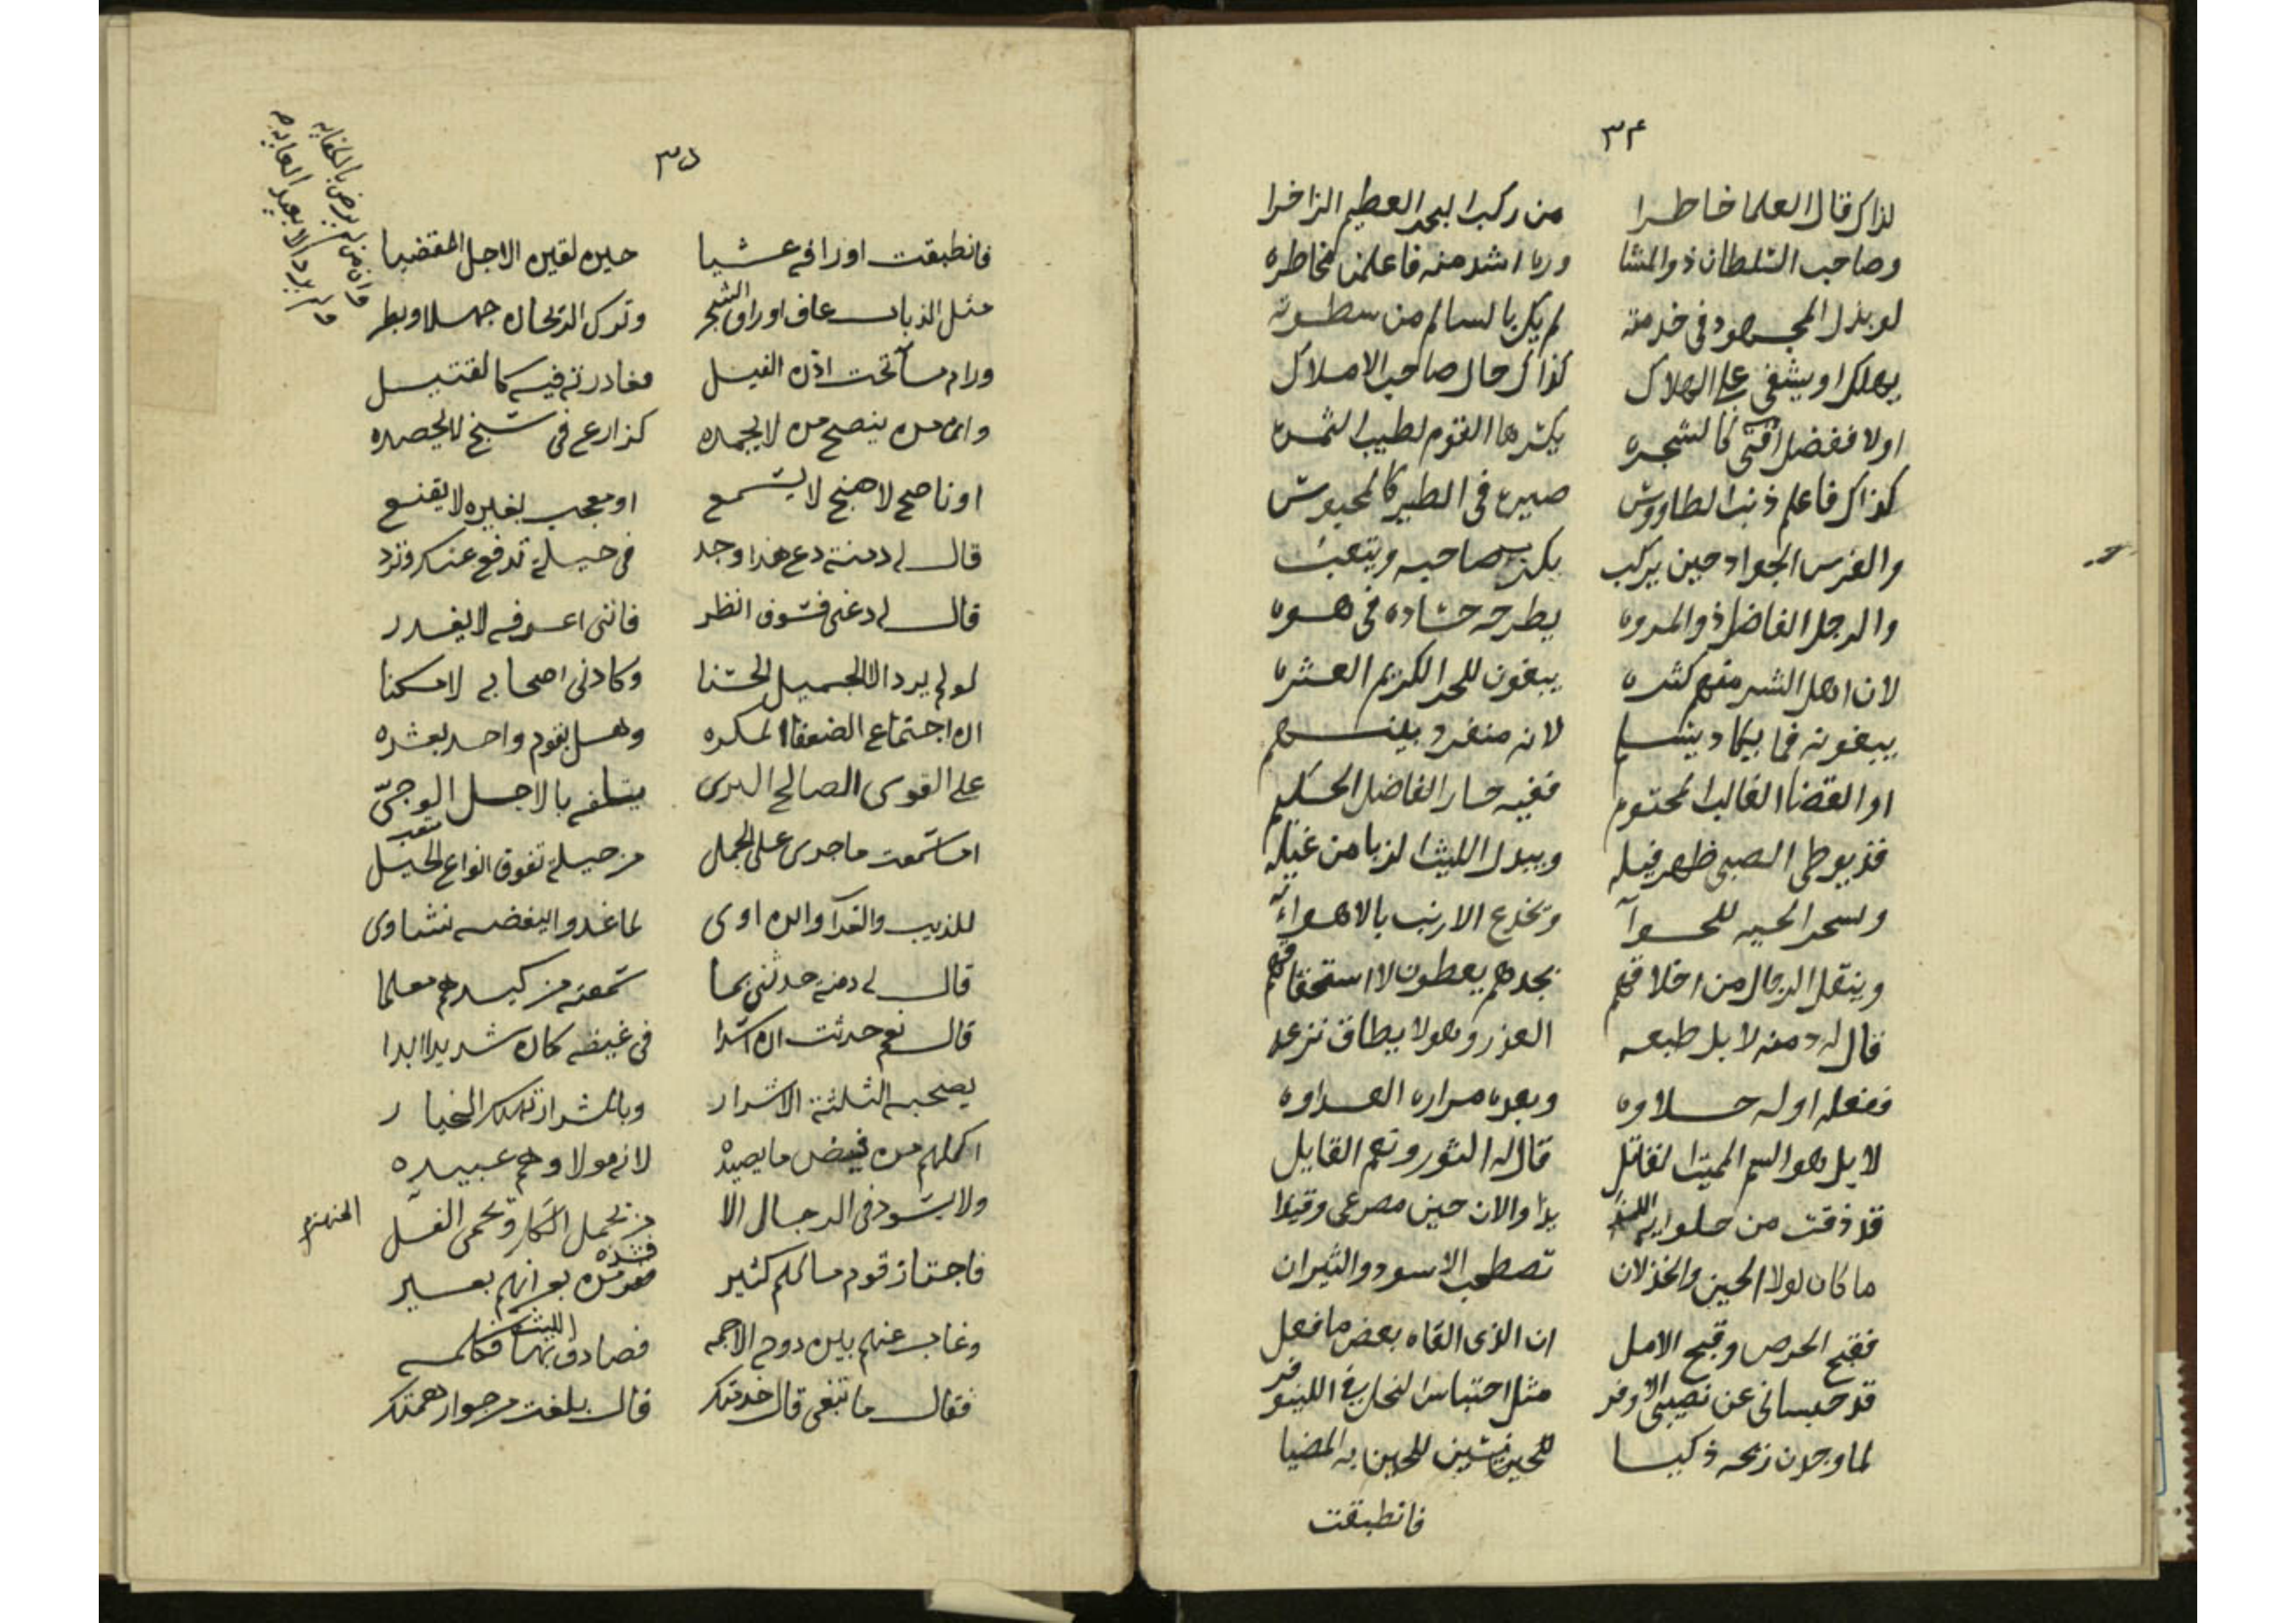 ٣٤
لذاك قال العلما خاطرا من ركب البحر العظيم الزاخرا
وصاحب السلطان ذو المشا اشد منه فاعلمن مخاطره
لو بذل المجهود فى خدمته لم يكن بالسالم من سطوته
يهلك او يشفى على الهلاك كذاك حال صاحب الاملاك
اولا ففضل الفتى كالشجره يكثرها القوم لطيب الثمره
كذاك فاعلم ذنب الطاووش صيره فى الطير كالمحبوش
والفرس الجواد حين يركب يكذه صاحبه ويتعب
والرجل الفاضل ذو المروه يطرحه حساده فى هوه
لان اهل الشر منهم كثره يبغون للحر الكريم العثره
يبغونه فما يكاد يسلم لانه منفرد بينهم
او القضا الغالب المحتوم ففيه حار الفاضل الحكيم
قد يوطى الصبى ظهر فيله ويبدل الليث الزبا من غيله
وتسحر الحيه للحوآ وتخدع الارنب بالاهوآء
وينقل الرجال من اخلاقهم نجدهم يعطون لا استحقاقهم
قال له دمنه لا بل طبعه الغدر وهو لا يطاق نزعه
ففعله اوله حلاوه وبعده مراره العداوه
لا بل هو السم المميت القاتل قال له الثور ونعم القايل
قد ذقت من حلو والان حين مصرعى وقيدا
ما كان لولا الحين والخذلان تصطحب الاسود والثيران
فقبح الحرص وقبح الامل ان الذى القاه بعض ما فعل
قد حبسانى عن نصيبى الاوفر مثل احتباس النحل فى اللينوفر
لما وجدن ريحه ذكيا للحين
فانطبقت
٣٥
فانطبقت اوراقه عشيا حين لقين الاجل المقضيا
مثل الذباب عاف اوراق الشجر وترك الريحان جهلا وبطر
ورام مآ تحت اذن الفيل فغادرته فيه كالقتيل
وان من ينصح من لا يحمده كزارع فى سبخ لا يحصده
او ناصح لا هنج لا يسمع او معجب بغيره لا يقنع
قال له دمنة دع هذا وجد فى حيلة تدفع عنك وتزد
قال له دعنى فسوف انظر فاننى اعرفه لا يغدر
لو لم يرد الا الجميل الحسنا وكادنى اصحابه لامكنا
ان اجتماع الضعفا المكره وهل يقوم واحد بعشره
على القوى الصالح البرى يتلفه بالاجل الوحىّ
اما سمعت ما جرى على الجمل من حيلة تفوق انواع الحيل
للذيب والغرآ وابن اوى لما غدوا لبغضه نشاوى
قال له دمنه حدثنى بما سمعته من كيدهم معلما
قال نعم حدثت ان اسدا فى غيضه كان شديدا ابدا
يصحبه الثلثة الاشرار وبالشرار تهلك الخيار
اكلهم من فيض ما يصيده لانه مولا وهم عبيده
ولا يسود فى الرجال الا من يحمل الكل ويحمى الغل
فاجتاز قوم مالهم كثير بعير
وغاب عنهم بين دوح الاجمه فصادف الليث فكلمه
فقال ما تبغى قال خدمتك قال بلغت من جوار همتك